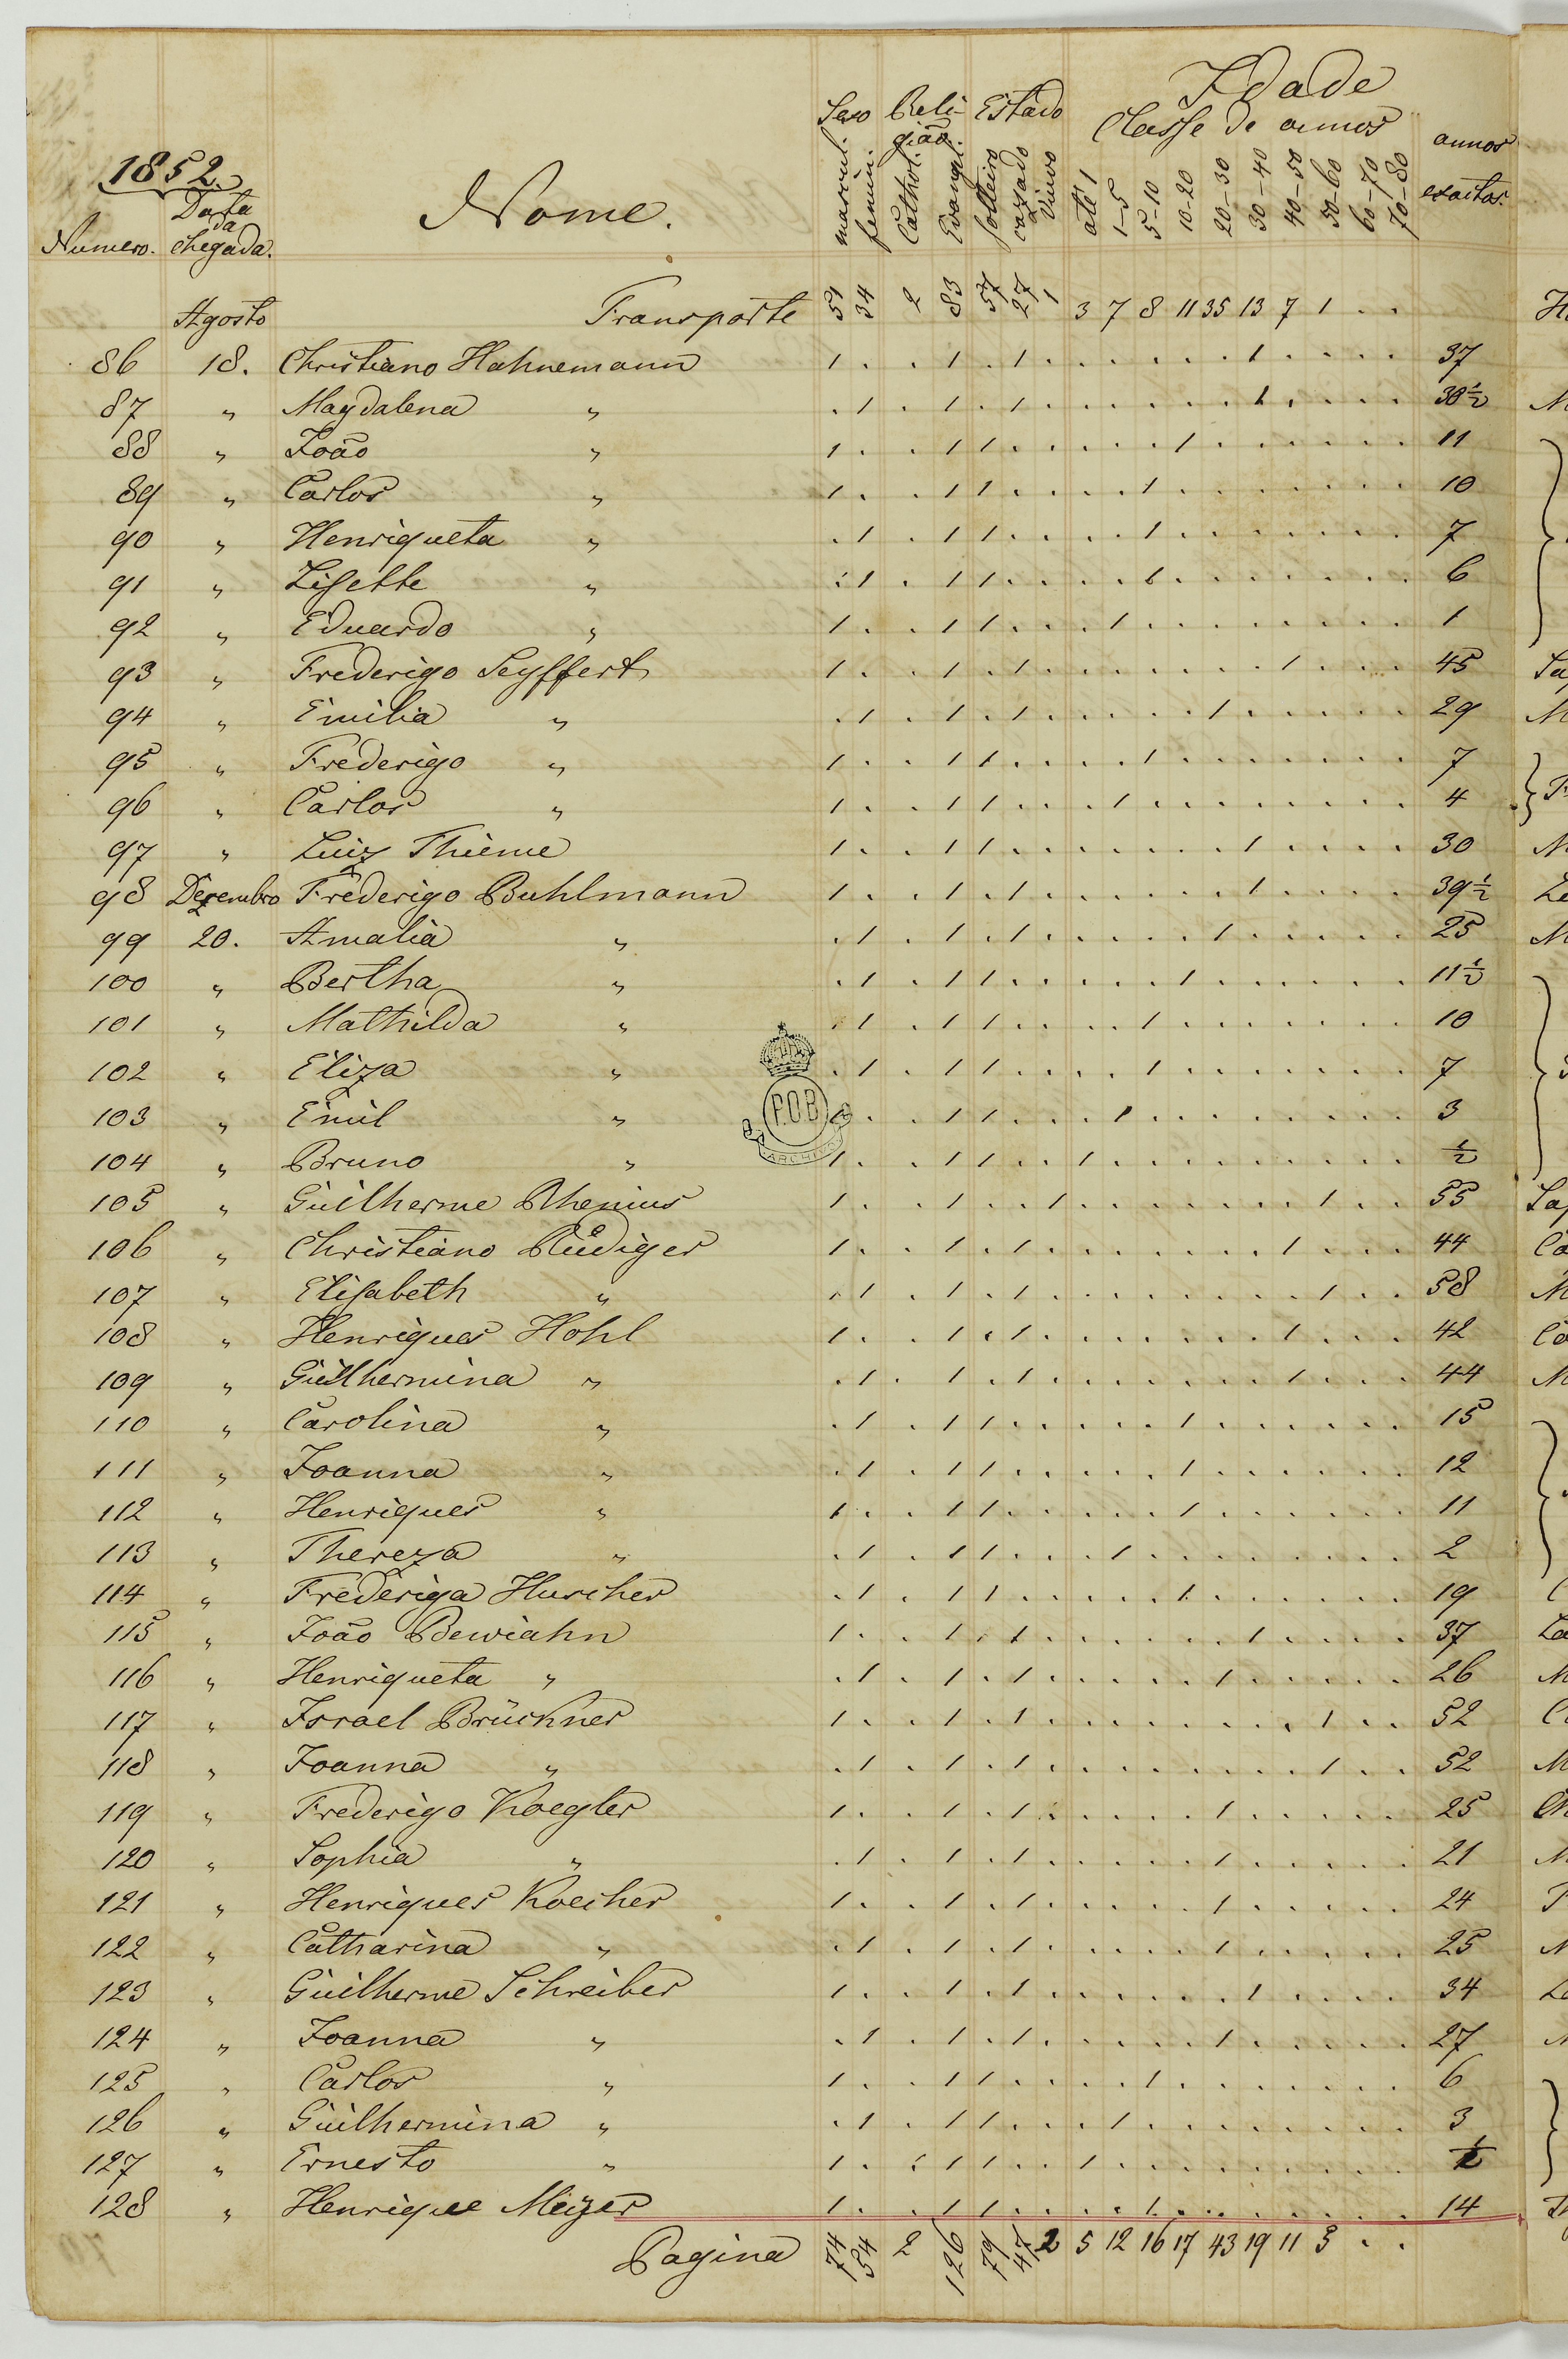 1852.
Numero. Data da Chegada. Nome. Sexo mascul. feminin. Religião Cathol. Evangel. Estado solteiro cazado Viuvo Idade Classe de annos até 1 1-5 5-10 10-20 20-30 30-40 40-50 50-60 60-70 70-80 annos exactos.
Agosto Transporte 51 34 2 83 57 27 1 3 7 8 11 35 13 7 1 . .
86 18. Christiano Hahnemann 1 . . 1 . 1 . . . . . . 1 . . . . 37
87 " Magdalena " . 1 . 1 . 1 . . . . . . 1 . . . . 38½
88 " João " 1 . . 1 1 . . . . . 1 . . . . . . 11
89 " Carlos " 1 . . 1 1 . . . . 1 . . . . . . . 10
90 " Henriqueta " . 1 . 1 1 . . . . 1 . . . . . . . 7
91 " Lisette " . 1 . 1 1 . . . . 1 . . . . . . . 6
92 " Eduardo " 1 . . 1 1 . . . 1 . . . . . . . . 1
93 " Frederigo Seyffert 1 . . 1 . 1 . . . . . . . 1 . . . 45
94 " Emilia " . 1 . 1 . 1 . . . . . 1 . . . . . 29
95 " Frederigo " 1 . . 1 1 . . . . 1 . . . . . . . 7
96 " Carlos " 1 . . 1 1 . . . 1 . . . . . . . . 4
97 " Luiz Thieme 1 . . 1 1 . . . . . . . 1 . . . . 30
98 Dezembro Frederigo Buhlmann 1 . . 1 . 1 . . . . . . 1 . . . . 39½
99 20. Amalia " . 1 . 1 . 1 . . . . . 1 . . . . . 25
100 " Bertha " . 1 . 1 1 . . . . . 1 . . . . . . 11½
101 " Mathilda " . 1 . 1 1 . . . . 1 . . . . . . . 10
102 " Eliza " . 1 . 1 1 . . . . 1 . . . . . . . 7
103 " Emil " 1 . . 1 1 . . . 1 . . . . . . . . 3
104 " Bruno " 1 . . 1 1 . . 1 . . . . . . . . . ½
105 " Guilherme Rhenius 1 . . 1 . . 1 . . . . . . . 1 . . 55
106 " Christiano Rüdiger 1 . . 1 . 1 . . . . . . . 1 . . . 44
107 " Elisabeth " . 1 . 1 . 1 . . . . . . . . 1 . . 58
108 " Henriques Hohl 1 . . 1 . 1 . . . . . . . 1 . . . 42
109 " Guilhermina " . 1 . 1 . 1 . . . . . . . 1 . . . 44
110 " Carolina " . 1 . 1 1 . . . . . 1 . . . . . . 15
111 " Joanna " . 1 . 1 1 . . . . . 1 . . . . . . 12
112 " Henriques " 1 . . 1 1 . . . . . 1 . . . . . . 11
113 " Thereza " . 1 . 1 1 . . . 1 . . . . . . . . 2
114 " Frederiga Huscher . 1 . 1 1 . . . . . 1 . . . . . . 19
115 " João Bewiahn 1 . . 1 . 1 . . . . . . 1 . . . . 37
116 " Henriqueta " . 1 . 1 . 1 . . . . . 1 . . . . . 26
117 " Israel Brückner 1 . . 1 . 1 . . . . . . . . 1 . . 52
118 " Joanna " . 1 . 1 . 1 . . . . . . . . 1 . . 52
119 " Frederigo Koegler 1 . . 1 . 1 . . . . . 1 . . . . . 25
120 " Sophia " . 1 . 1 . 1 . . . . . 1 . . . . . 21
121 " Henriques Koecher 1 . . 1 . 1 . . . . . 1 . . . . . 24
122 " Catharina " . 1 . 1 . 1 . . . . . 1 . . . . . 25
123 " Guilherme Schreiber 1 . . 1 . 1 . . . . . . 1 . . . . 34
124 " Joanna " . 1 . 1 . 1 . . . . . 1 . . . . . 27
125 " Carlos " 1 . . 1 1 . . . . 1 . . . . . . . 6
126 " Guilhermina " . 1 . 1 1 . . . 1 . . . . . . . . 3
127 " Ernesto " 1 . . 1 1 . . 1 . . . . . . . . . ½
128 " Henrique Meyer 1 . . 1 1 . . . . 1 . . . . . . . 14
Pagina 74 54 2 126 79 47 2 5 12 16 17 43 19 11 5 . .
P.O.B
ARCHIV